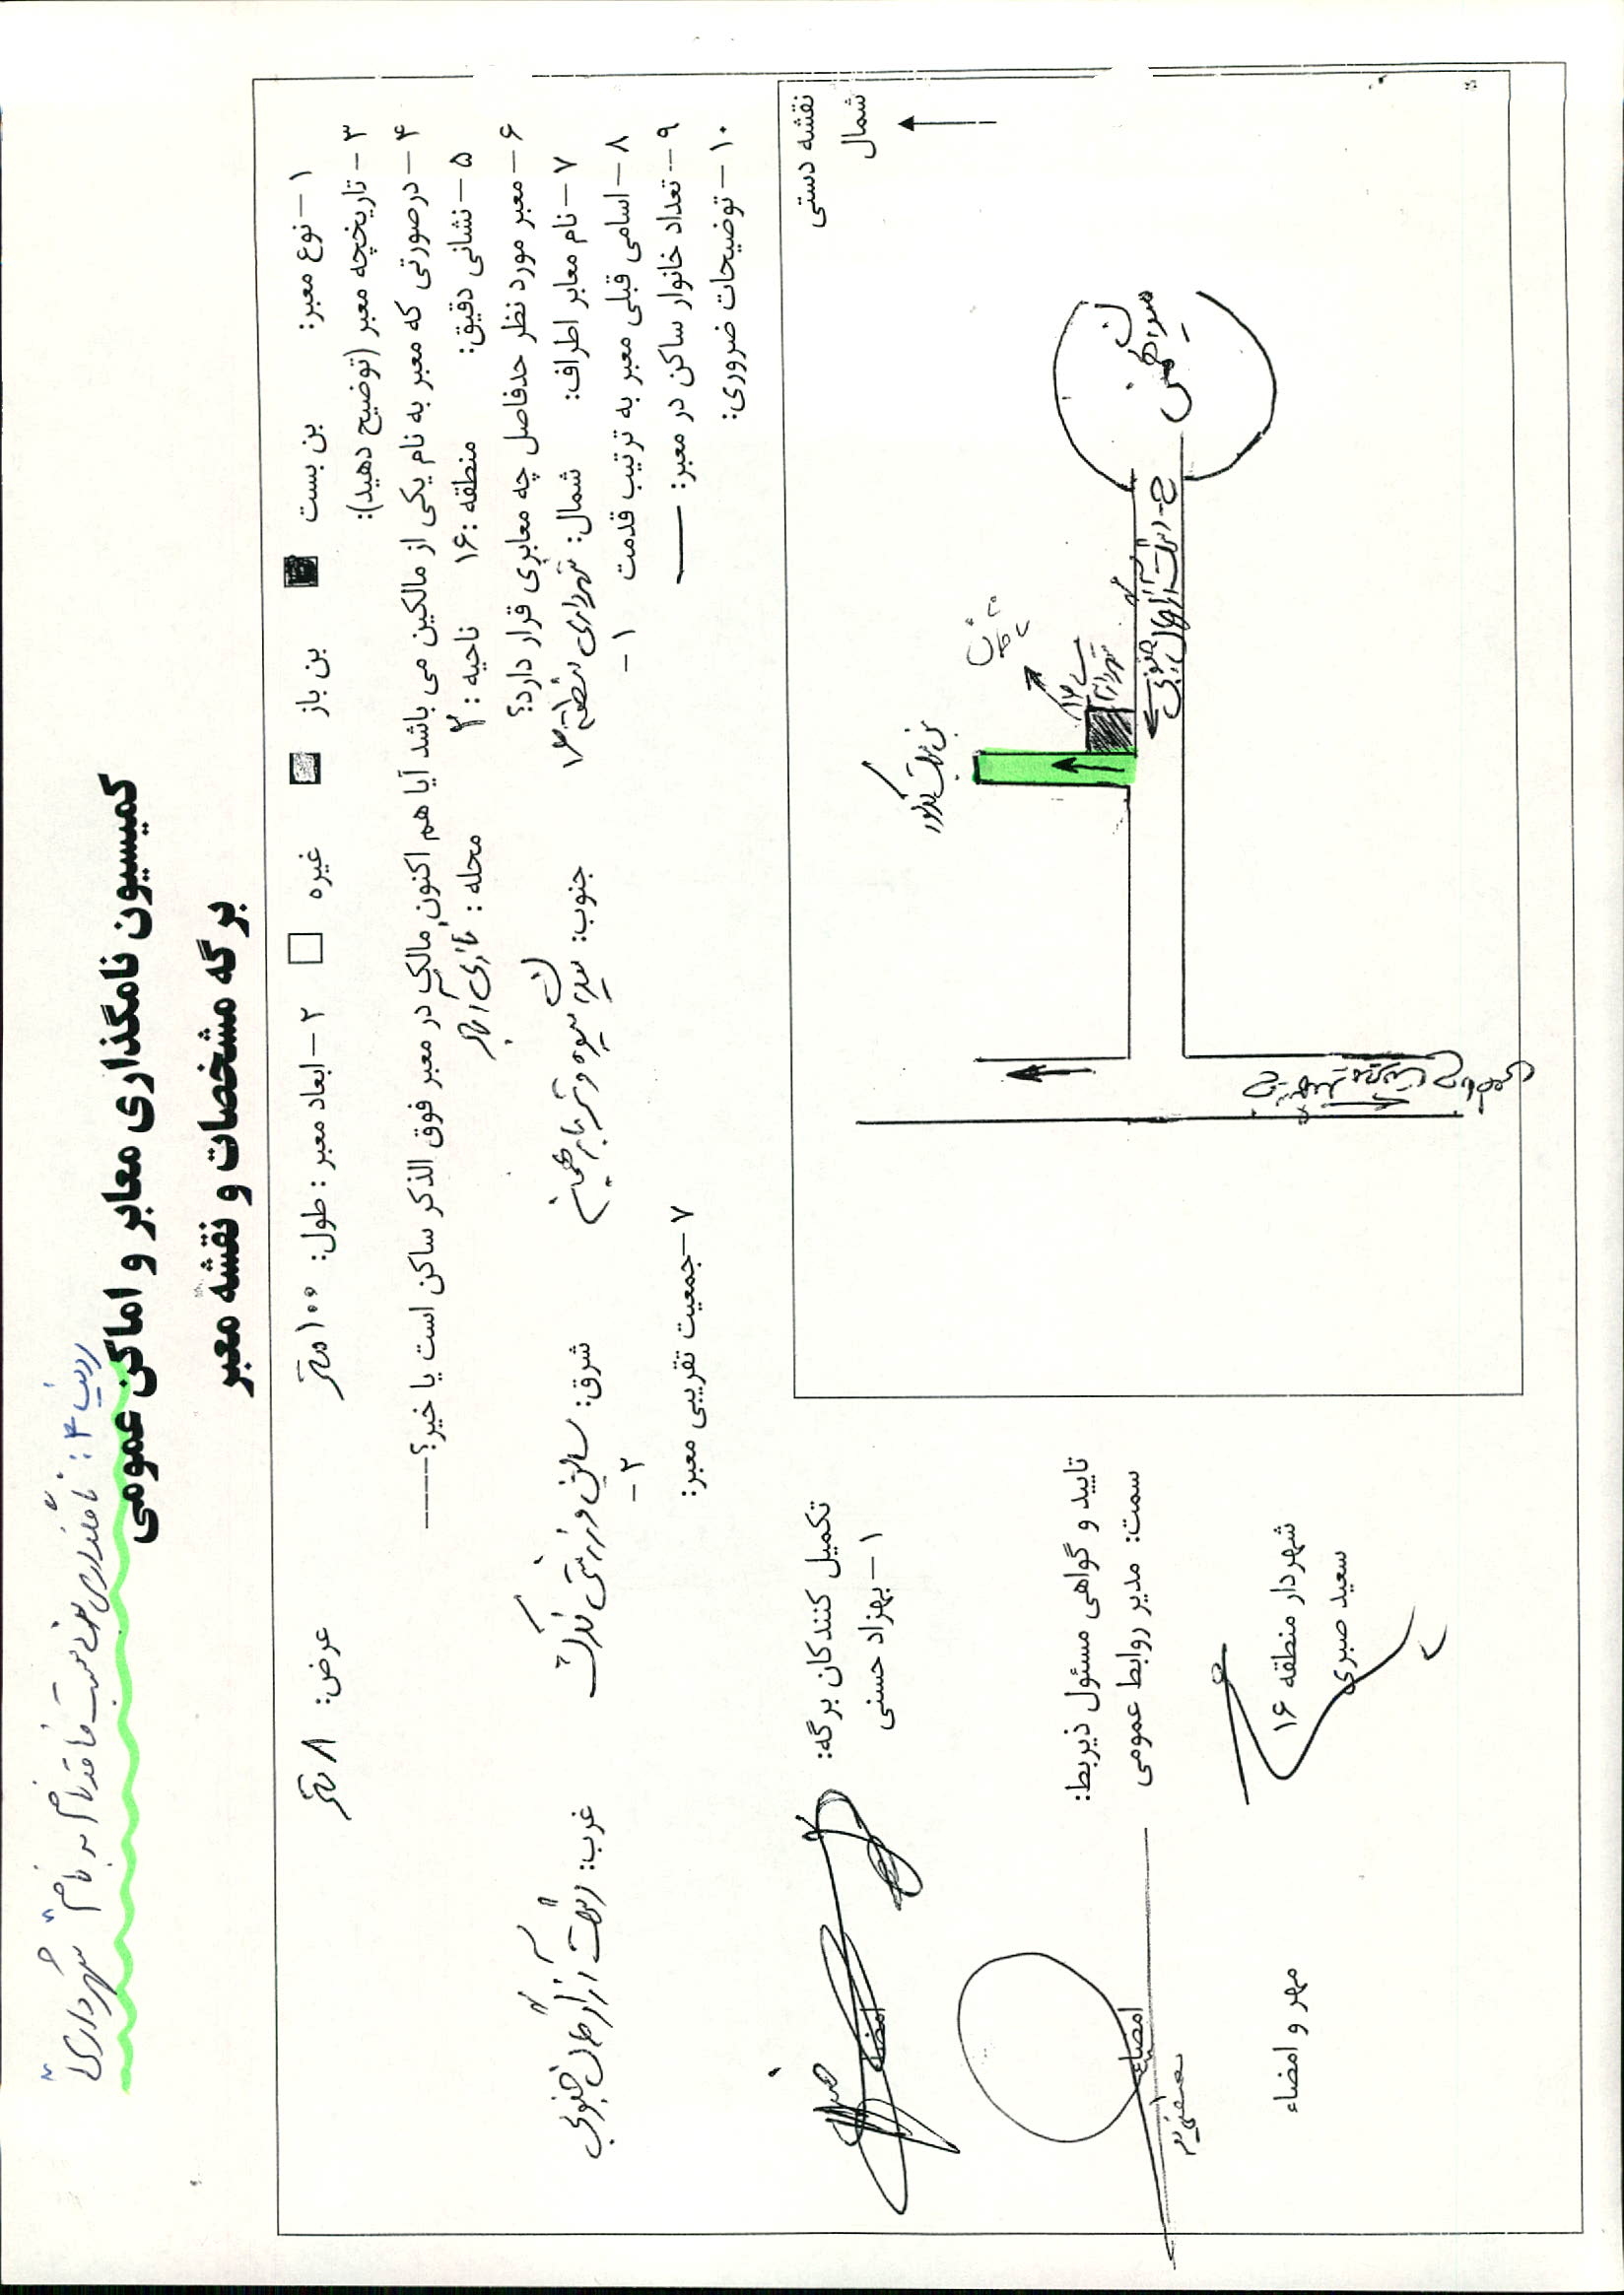 ردیف ۴: نامگذاری بن بست فاقد نام به نام "شهرداری"
کمیسیون نامگذاری معابر و اماکن عمومی
برگه مشخصات و نقشه معبر
۱- نوع معبر: بن بست بن باز غیره ۲- ابعاد معبر: طول: ۱۰۰ متر عرض: ۸ متر
۳- تاریخچه معبر (توضیح دهید):
۴- درصورتی که معبر به نام یکی از مالکین می باشد آیا هم اکنون مالک در معبر فوق الذکر ساکن است یا خیر؟-----
۵- نشانی دقیق: منطقه: ۱۶ ناحیه: ۲ محله: نازی آباد
۶- معبر مورد نظر حدفاصل چه معابری قرار دارد؟
۷- نام معابر اطراف: شمال: شهرداری منطقه ۱۶ جنوب: میدان میوه و تره بار بهمن شرق: سالن ورزشی غرب: دشت آزادگان جنوبی
۸- اسامی قبلی معبر به ترتیب قدمت ۱- ۲-
۹- تعداد خانوار ساکن در معبر: — ۷- جمعیت تقریبی معبر:
۱۰- توضیحات ضروری:
نقشه دستی
شمال
میدان بهمن
خ دشت آزادگان جنوبی
شهرداری
بن بست
تکمیل کنندگان برگه:
۱- بهزاد حسنی
امضاء
تایید و گواهی مسئول ذیربط:
سمت: مدیر روابط عمومی
امضاء
شهردار منطقه ۱۶
سعید صبری
مهر و امضاء